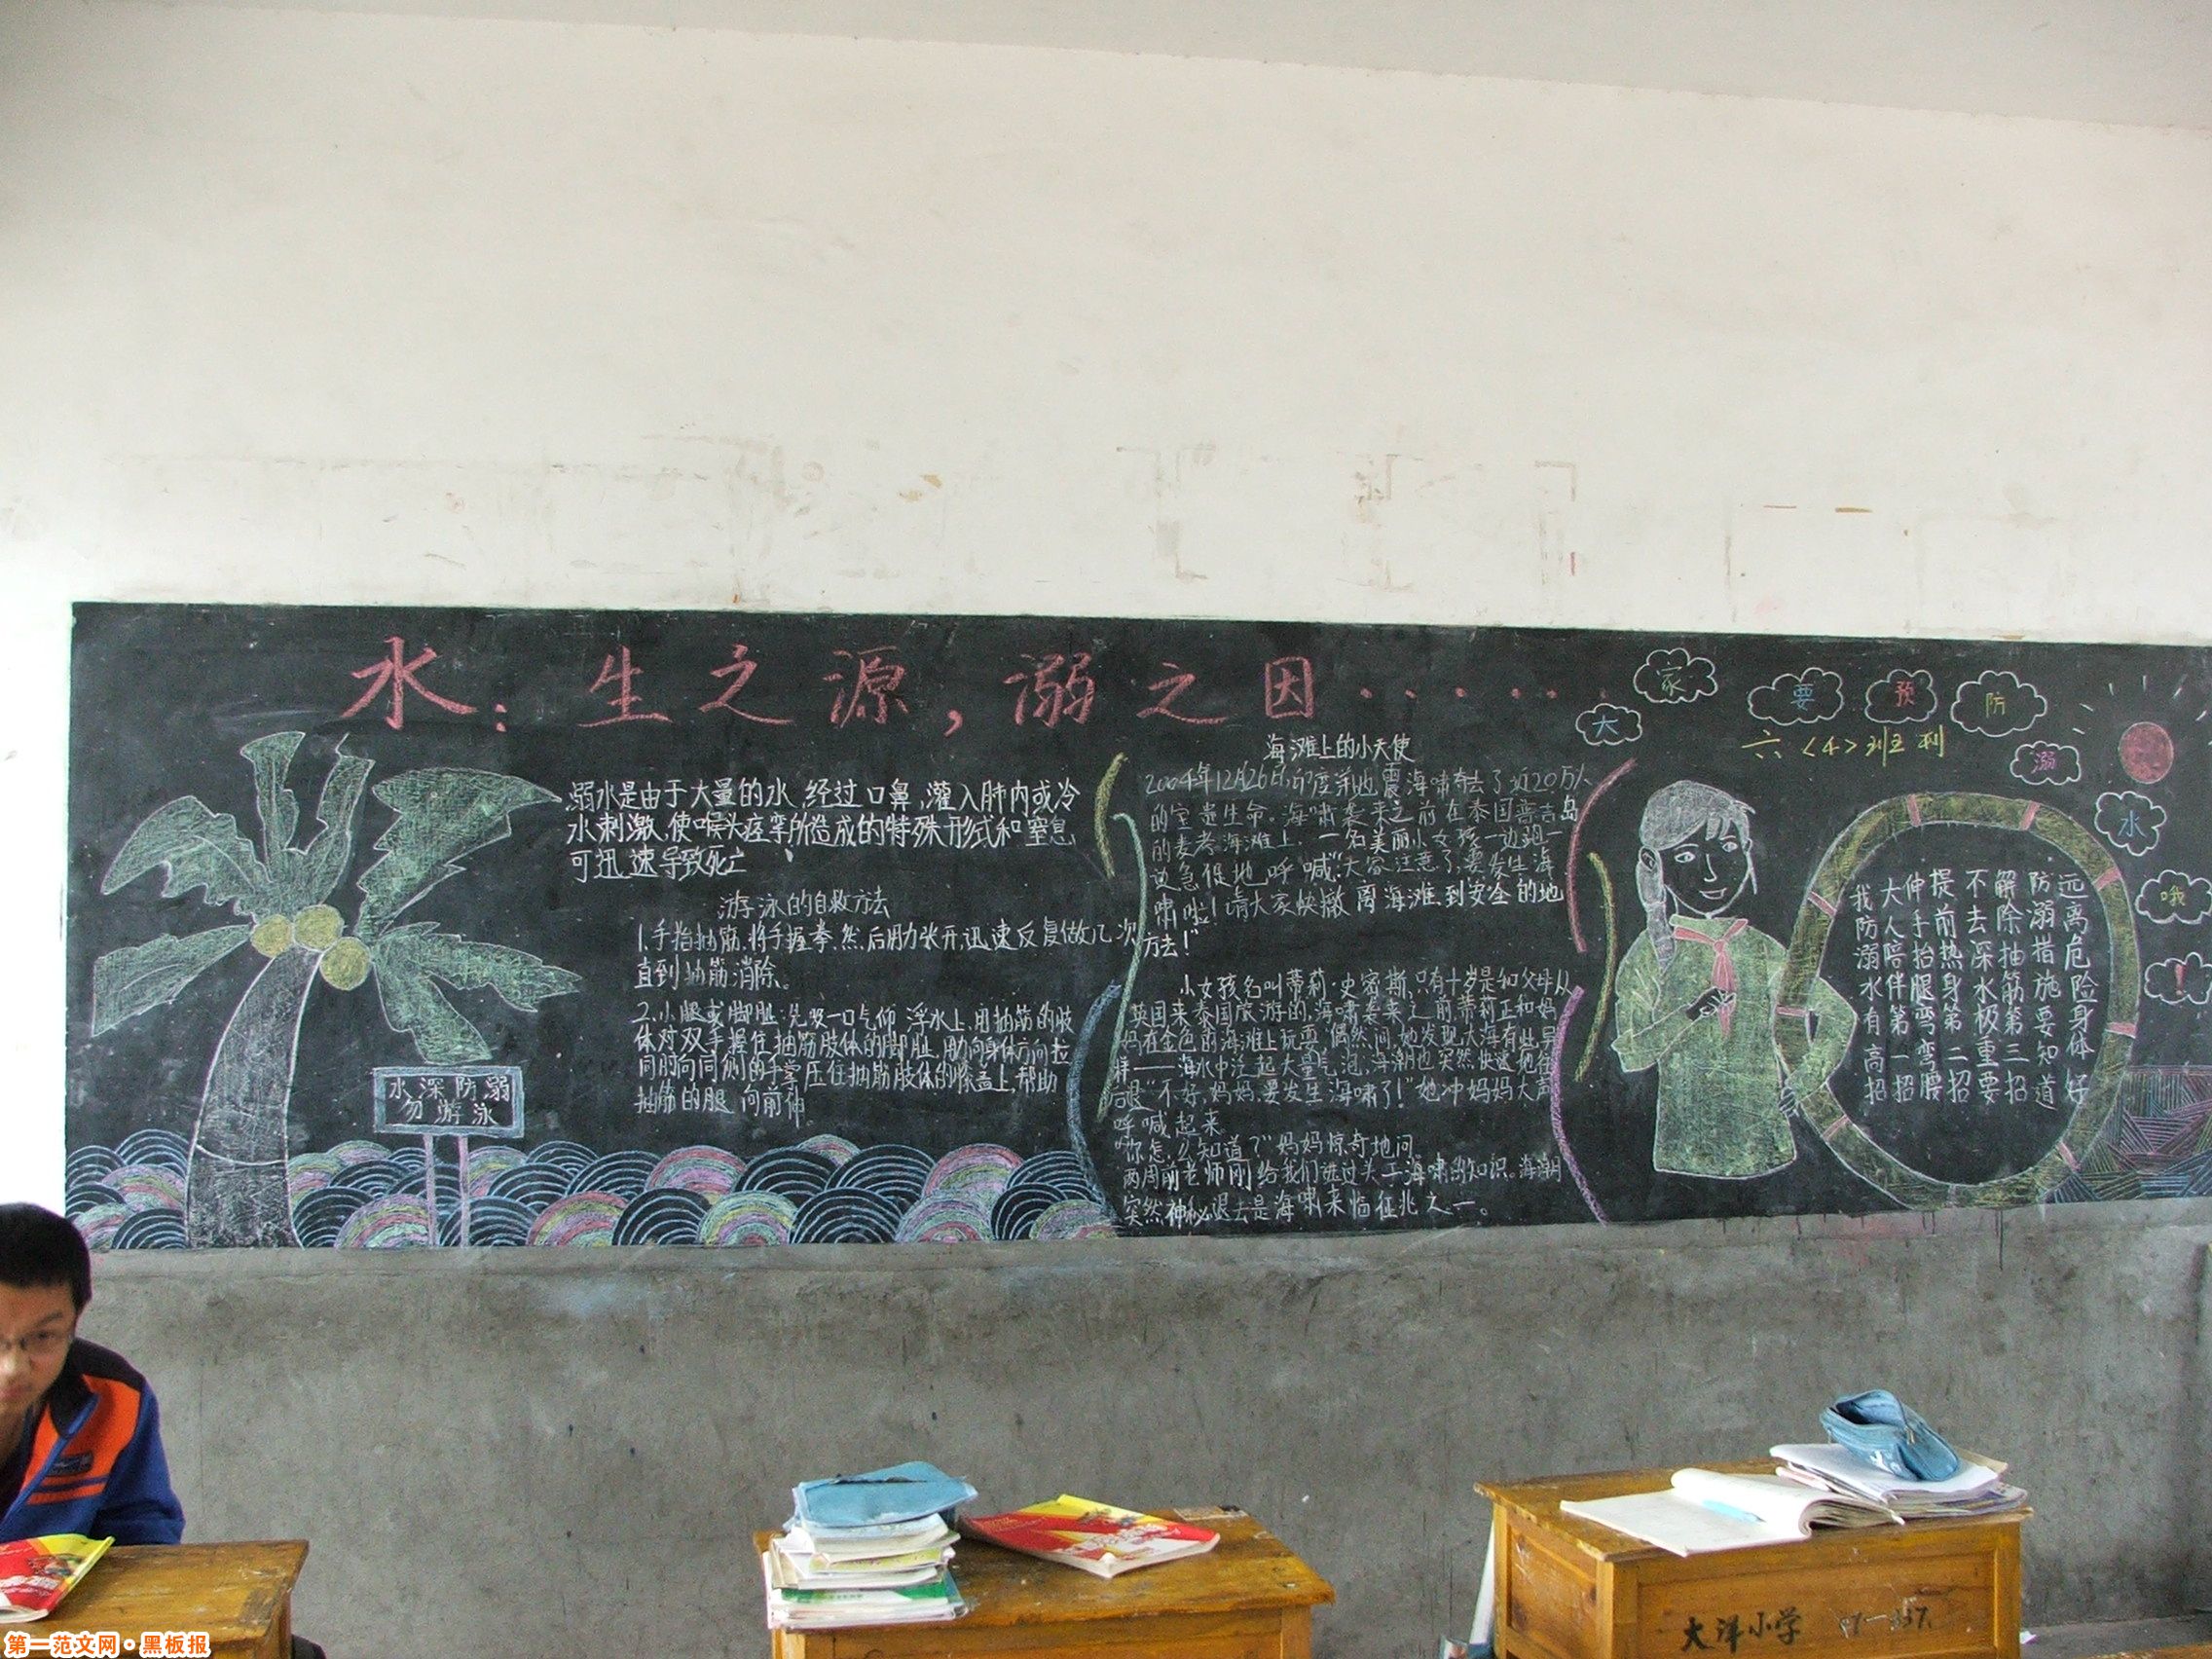 水：生之源，溺之因......
大家要预防溺水哦！
六<4>班刊
溺水是由于大量的水,经过口鼻,灌入肺内或冷
水刺激,使喉头痉挛所造成的特殊形式和窒息,
可迅速导致死亡
游泳的自救方法
1.手指抽筋,将手握拳,然后用力张开,迅速反复做几次
直到抽筋消除。
2.小腿或脚趾:先吸一口气仰浮水上,用抽筋的肢
体对双手握住抽筋肢体的脚趾,用力向身体方向拉
同时向同侧的手掌压住抽筋肢体的膝盖上,帮助
抽筋的腿向前伸。
水深防溺
勿游泳
海滩上的小天使
2004年12月26日,印度洋地震海啸夺去了近20万人
的宝贵生命。海啸袭来之前在泰国普吉岛
的麦考海滩上,一名美丽小女孩一边跑一
边急促地呼喊:“大家注意了,要发生海
啸啦!请大家快撤离海滩,到安全的地
方去!”
小女孩名叫蒂莉·史密斯,只有十岁是和父母从
英国来泰国旅游的,海啸袭来之前,蒂莉正和妈
妈在金色的海滩上玩耍,偶然间,她发现大海有些异
样——海水中泛起大量气泡,海潮也突然快速地往
后退“不好,妈妈,要发生海啸了!”她冲妈妈大声
呼喊起来
“你怎么知道?”妈妈惊奇地问
两周前老师刚给我们讲过关于海啸的知识。海潮
突然神秘退去是海啸来临征兆之一。
我防溺水有高招
大人陪伴第一招
伸手抬腿弯弯腰
提前热身第二招
不去深水极重要
解除抽筋第三招
防溺措施要知道
远离危险身体好
大洋小学
第一范文网·黑板报